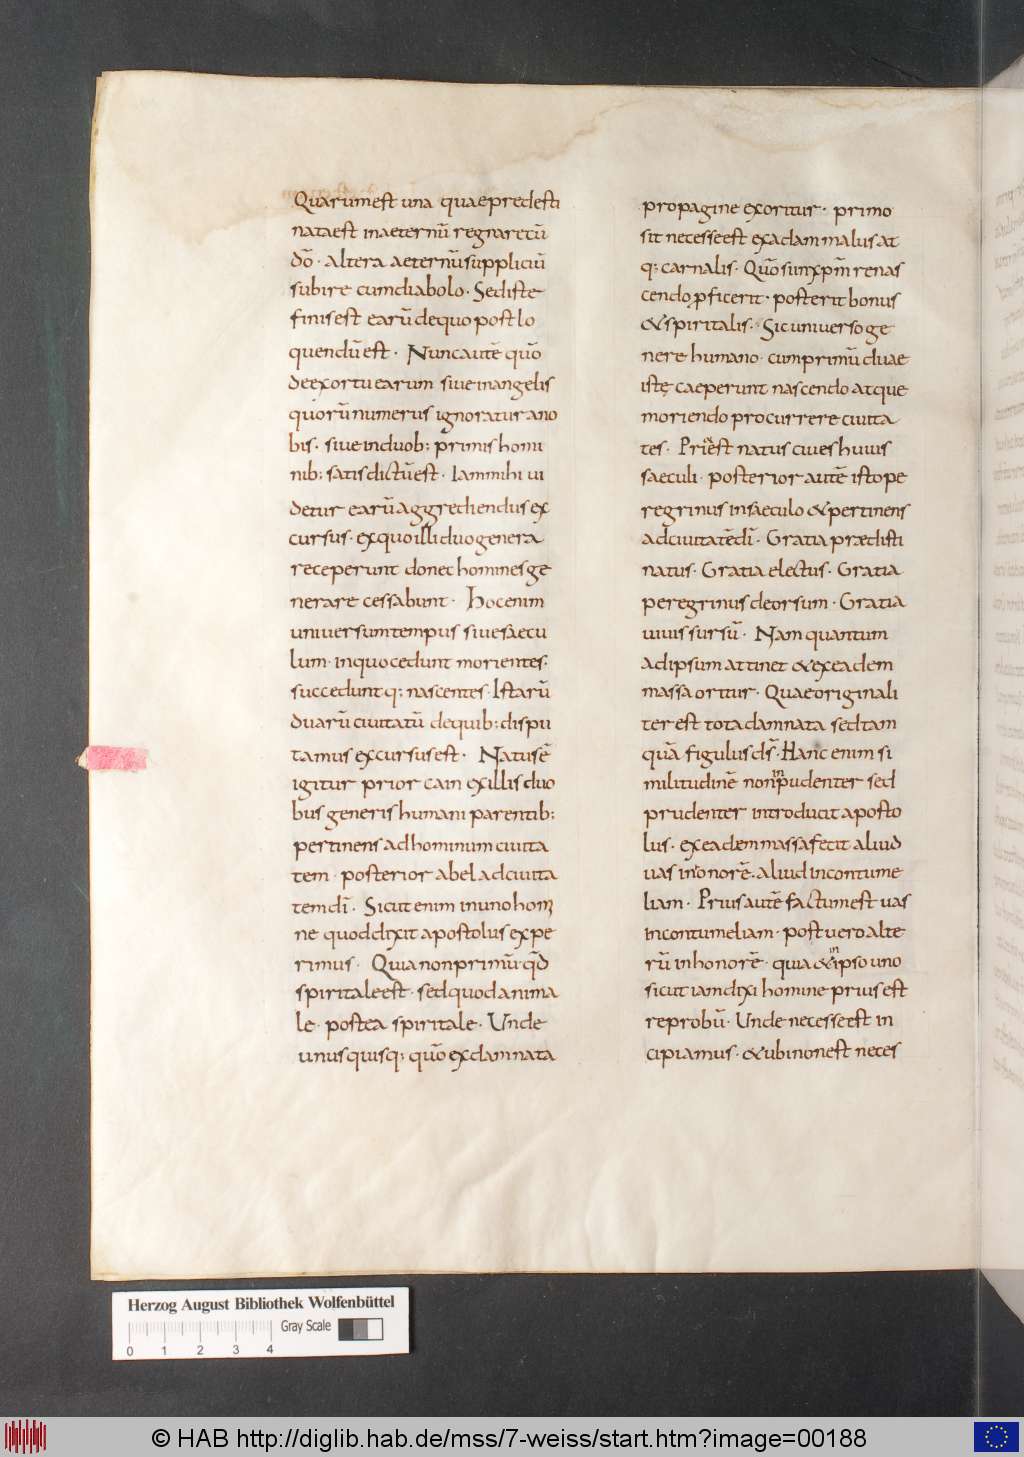 Quarum est una quae predesti
nata est in aeternū regnare cū
dō · Altera aeternū suppliciū
subire cum diabolo · Sed iste
finis est earū de quo post lo
quendū est · Nunc autē quō
de exortu earum siue in angelis
quorū numerus ignoratur a no
bis · siue in duob: primis homi
nib: satis dictū est · Iam mihi ui
detur earū aggrediendus ex
cursus · ex quo illi duo genera
receperunt donec homines ge
nerare cessabunt · Hoc enim
uniuersum tempus siue saecu
lum · in quo cedunt morientes ·
succeduntq: nascentes · Istarū
duarū ciuitatū de quib: dispu
tamus excursus est · Natus ē
igitur prior cain ex illis duo
bus generis humani parentib:
pertinens ad hominum ciuita
tem · posterior abel ad ciuita
tem dī · Sicut enim in uno homi
ne quod dixit apostolus expe
rimur · Quia non primū qd̄
spiritale est · sed quod anima
le · postea spiritale · Unde
unusquisq: quō ex damnata
propagine exoritur · primo
sit necesse est ex adam malus at
q: carnalis · Quō si in xpm̄ renas
cendo ꝓficerit · post erit bonus
& spiritalis · Sic uniuerso ge
nere humano · cum primū duae
istę caeperunt nascendo atque
moriendo procurrere ciuita
tes · Pri est natus ciues huius
saeculi · posterior autē isto pe
regrinus in saeculo & pertinens
ad ciuitatē dī · Gratia prædisti
natus · Gratia electus · Gratia
peregrinus deorsum · Gratia
ciuis sursū · Nam quantum
ad ipsum attinet & ex eadem
massa oritur · Quae originali
ter est tota damnata sed tam
quā figulus ds̄ · Hanc enim si
militudinē non inpudenter sed
prudenter introducit aposto
lus · ex eadem massa fecit aliud
uas in honorē · aliud in contume
liam · Prius autē factum est uas
in contumeliam · post uero alte
rū in honorē · quia & in ipso uno
sicut iam dixi homine prius est
reprobū · Unde necesse est in
cipiamus · & ubi non est neces
Herzog August Bibliothek Wolfenbüttel
Gray Scale
0 1 2 3 4
© HAB http://diglib.hab.de/mss/7-weiss/start.htm?image=00188